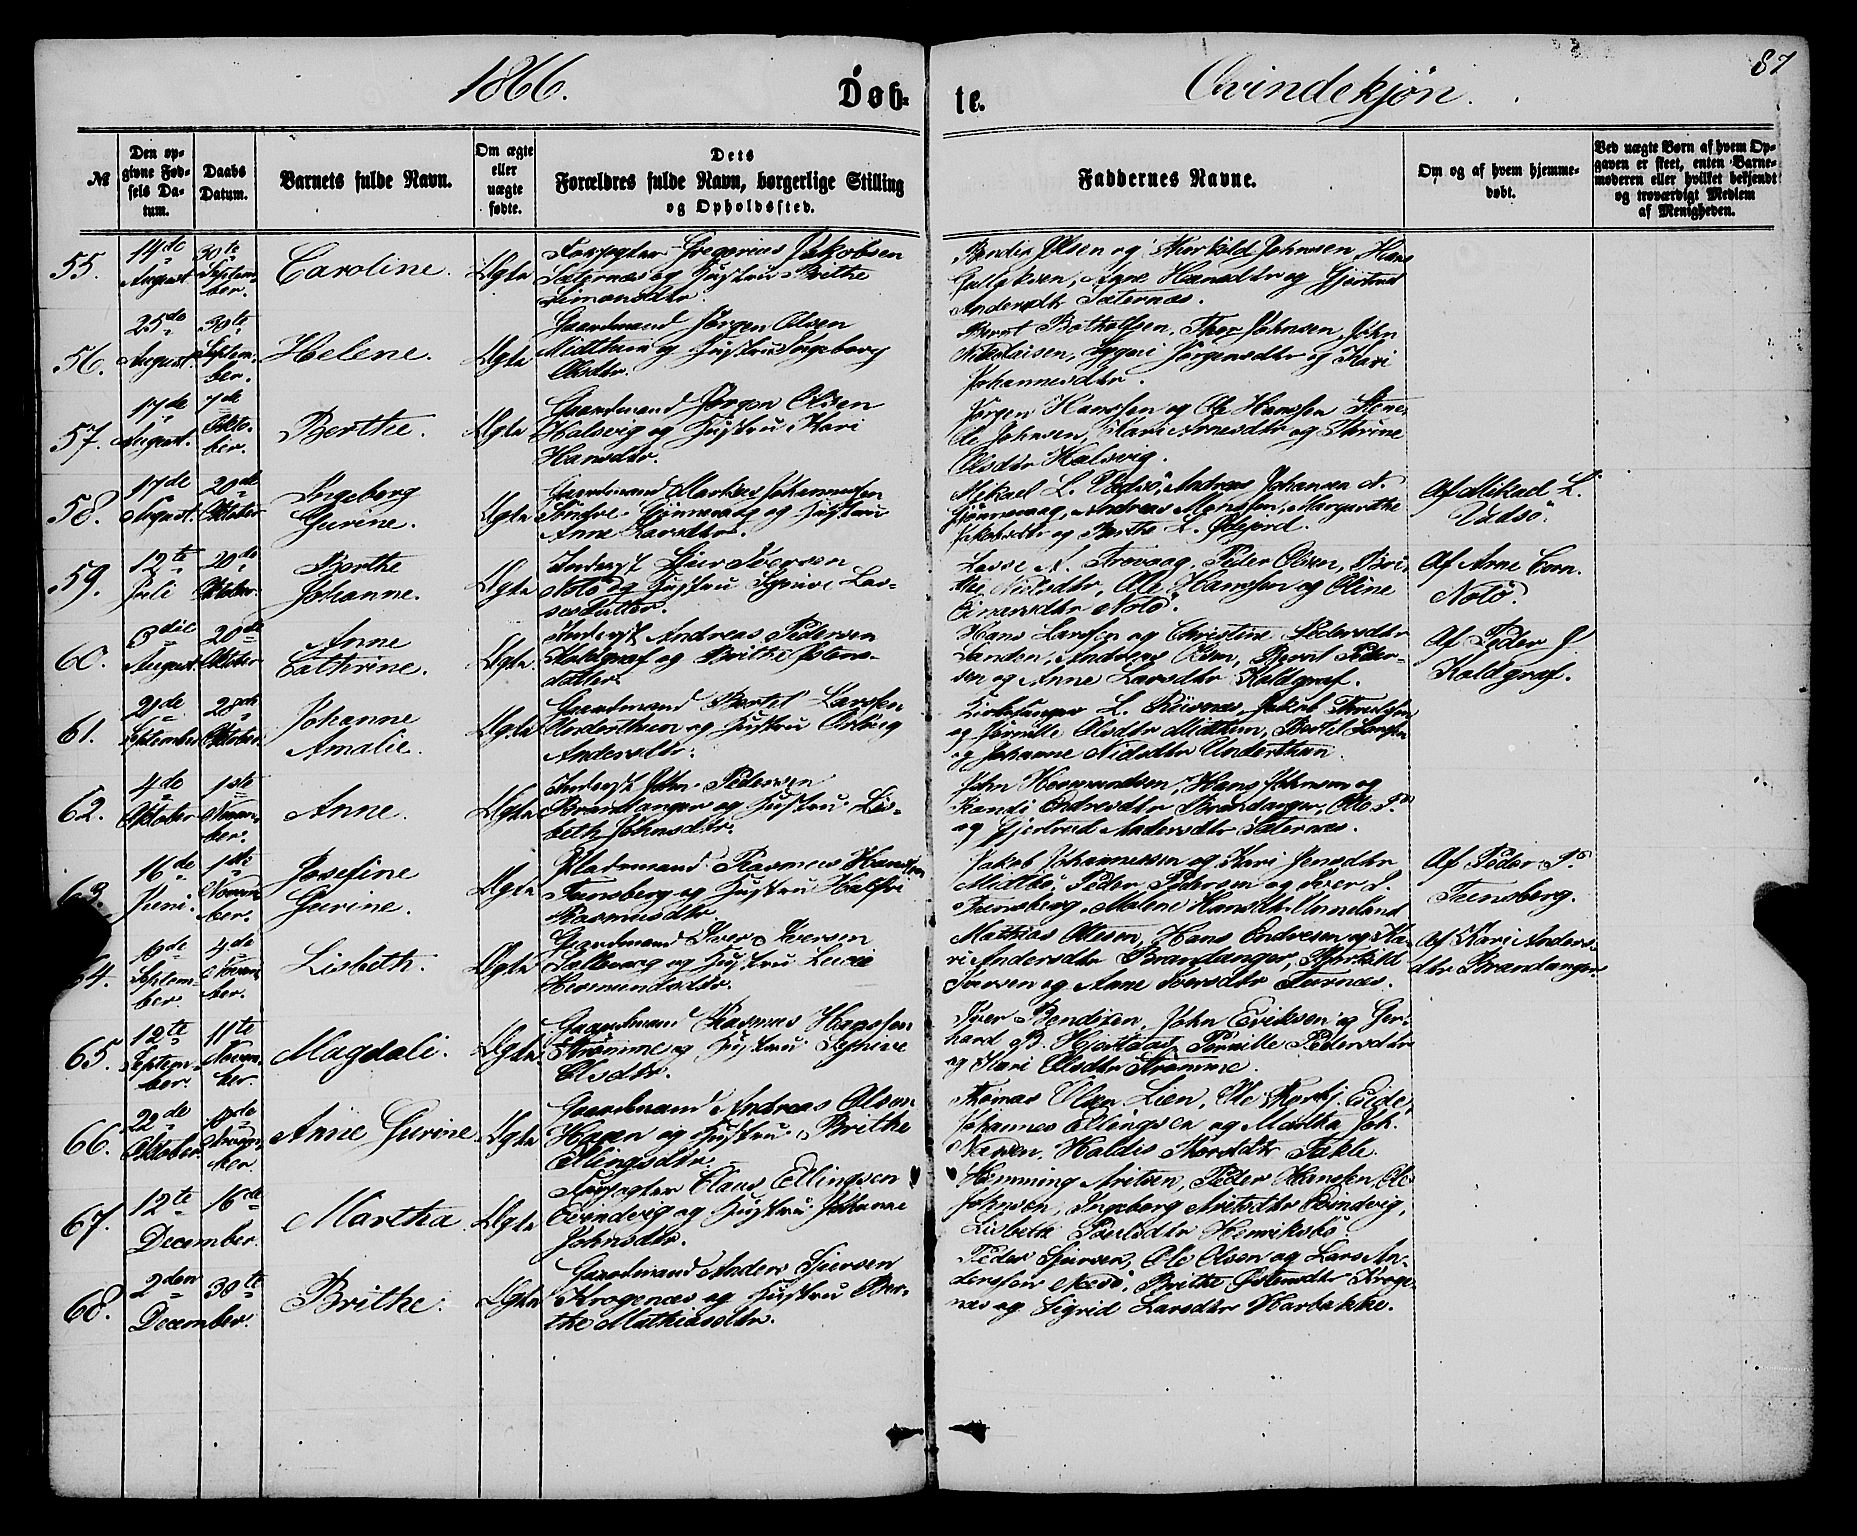 1866.
Døb-
te.
Qvindekjøn.
87
№
Den op-
givne Fød-
sels Da-
tum.
Daabs
Datum.
Barnets fulde Navn.
Om ægte
eller
uægte
fødte.
Dets
Forældres fulde Navn, borgerlige Stilling
og Opholdssted.
Faddernes Navne.
Om og af hvem hjemme-
døbt.
Ved uægte Børn af hvem Op-
gaven er skeet, enten Barne-
moderen eller hvilket bekjendt
og troværdigt Medlem
af Menigheden.
55.
14de
August
30te
Septem-
ber.
Caroline.
Ægte
Forpagter Gregorius Jakobsen
Sæternæs og Hustru Brithe
Simonsdtr.
Olsen og Therkild Johnsen, Hans
Hansdtr og Gjertrud
Andersdtr Sæternæs.
56.
25de
August.
30te
Septem-
ber.
Helene.
Ægte
Gaardmand Jørgen Olsen
Midthun og Hustru Ingeborg
Olsdtr.
Bernt Botholfsen, Thor Johnsen, John
Nikolaisen, Jørgensdtr og Kari
Johannesdtr.
57.
17de
August.
7de
Okto-
ber.
Berthe.
Ægte
Gaardmand Jørgen Olsen
Halsvig og Hustru Kari
Hansdtr.
Jørgen Hanssen og Ole Hanssen
Ole Johnsen, Kari Arnesdtr og Thrine
Olsdtr Halsvig.
58.
17de
August.
20de
Oktober
Ingeborg
Gurine.
Ægte
Gaardmand Markus Johannessen
Indre Gjønnevaag og Hustru
Anne Larsdtr.
Mikael L. Vadsø, Andreas Johansen
Gjønnevaag, Andreas Monssen, Margrethe
Jakobsdtr og Berthe L. Ødejord.
Af Mikael L.
Vadsø.
59.
12te
Juli
20de
Oktober.
Berthe
Johanne.
Ægte
Inderst Iver Iversen
Notø og Hustru Las-
sesdatter.
Lasse N. Trovaag, Peder Olsen, Bri-
the Nilsdtr, Ole Hanssen og Oline
Einarsdtr Notø.
Af Arne Corn.
Notø.
60.
3die
August
20de
Oktober
Anne
Cathrine.
Ægte.
Inderst Andreas Pedersen
Koldgraf og Brithe
datter.
Hans Larssen og Christine Pedersdtr
Sanden, Andreas Olsen, Bernt Peder-
sen og Anne Larsdtr Koldgraf.
Af Peder J.
Koldgraf.
61.
September
Oktober.
Johanne
Amalie.
Ægte
Gaardmand Bertel Larssen
Underthun og Hustru
Andersdtr.
Kirkesanger L. Risnes, Jakob
og Pernille Olsdtr Midthun, Bertel Larssen
og Johanne Nilsdtr Underthun.
62.
4de
Oktober
1ste
Novem-
ber.
Anne.
Ægte
Inderst John Pedersen
Brandanger og Hustru Lis-
beth Johnsdtr.
John Hermundsen, Hans Johnsen og
Randi Endresdtr Brandanger, Ole
og Gjertrud Andersdtr Sæternæs.
63.
16de
Juni.
1ste
Novem-
ber.
Josefine
Gurine.
Ægte
Pladsmand Rasmus Hanssen
Tunsberg og Hustru
Rasmusdtr.
Jakob Johannessen og Kari Jensdtr
Midtbø, Peder Pedersen og Iver
Tunsberg, Malene Hansdtr Unneland
Af Peder
Tunsberg.
64.
Septem-
ber.
4de
Novem-
ber.
Lisbeth.
Ægte
Gaardmand Iver Iversen
og Hustru
Hermundsdtr.
Mathias Olsen, Hans Endresen og Ka-
ri Andersdtr Brandanger, Therkild
Iversen og Anne Iversdtr
Af Kari Anders-
dtr Brandanger
65.
12te
Septem-
ber.
11te
Novem-
ber.
Magdali.
Ægte
Gaardmand Rasmus Hanssen
Strømme og Hustru
Olsdtr.
Iver Bendixen, John Eriksen og Ger-
hard B. Hjortaas, Pernille Pedersdtr
og Kari Olsdtr Strømme.
66.
22de
Oktober.
Novem-
ber
Anne Gurine
Ægte
Gaardmand Andreas Olsen
Hagen og Hustru Brithe
Ellingsdtr.
Thomas Olsen Lien, Ole Eide,
Johannes Ellingsen og Martha Joh.
Haldis Takle.
67.
12te
December.
16de
Martha
Ægte
Forpagter Claus Ellingsen
Evindvig og Hustru Johanne
Johnsdtr.
Hemming Aretsen, Peder Hanssen, Ole
Johnsen, Ingeborg Evindvig,
Lisbeth Henriksbø.
68.
2den
December.
30te
Brithe.
Ægte
Gaardmand Anders Sjursen
Krogenæs og Hustru Ber-
the Mathiasdtr.
Peder Sjursen, Ole Olsen og Lars An-
derssen Næsø, Brithe Østensdtr Kroge-
næs og Sigrid Larsdtr Harbakke.